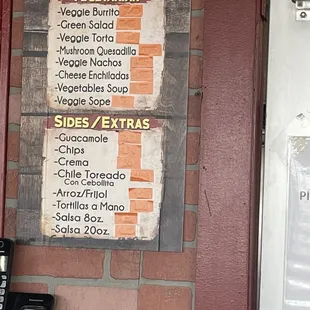 -Veggie Burrito
-Green Salad
-Veggie Torta
-Mushroom Quesadilla
-Veggie Nachos
-Cheese Enchiladas
-Vegetables Soup
-Veggie Sope
Sides/Extras
-Guacamole
-Chips
-Crema
-Chile Toreado
Con Cebollita
-Arroz/Frijol
-Tortillas a Mano
-Salsa 8oz.
-Salsa 20oz.